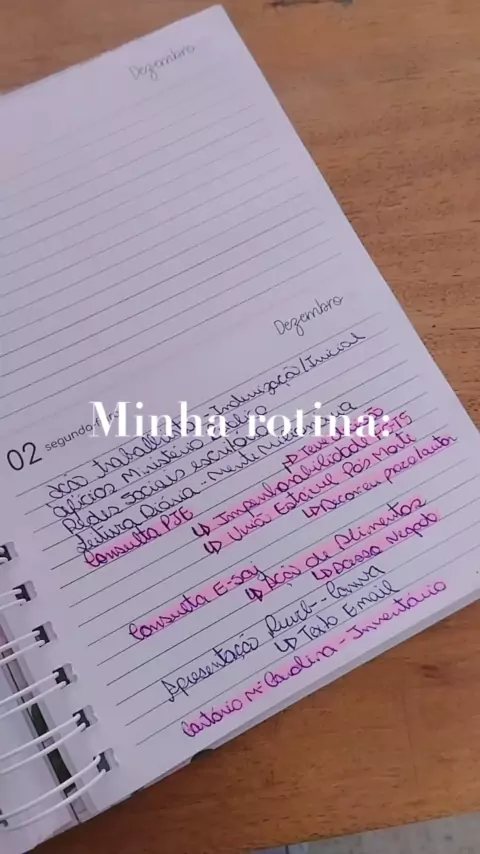 Dezembro
Dezembro
02 segunda-feira
Minha rotina:
Ação trabalhista - Indenização/Inicial
ofícios Ministério Público
Redes Sociais escritório
Leitura Diária - Mente
Consulta PJE
↳ Impenhorabilidade FGTS
↳ União Estável Pós Morte
↳ Decorreu prazo
Consulta E-saj
↳ Ação de Alimentos
↳ Negado
Apresentação - Canva
↳ Texto Email
Cartório Mª Carolina - Inventário